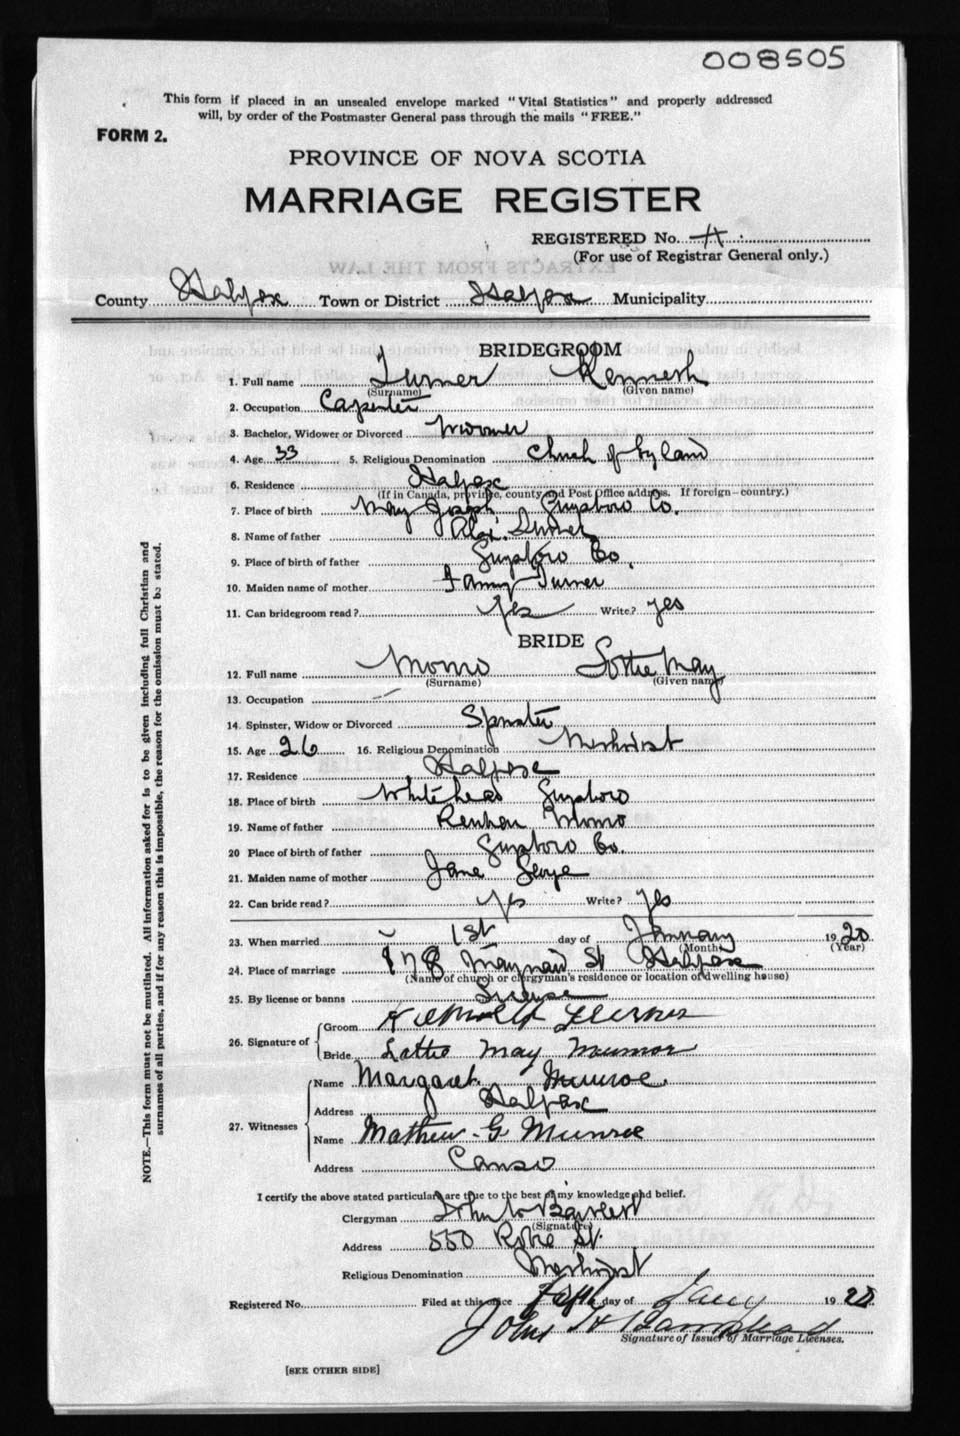 008505
This form if placed in an unsealed envelope marked "Vital Statistics" and properly addressed
will, by order of the Postmaster General pass through the mails "FREE."
FORM 2.
PROVINCE OF NOVA SCOTIA
MARRIAGE REGISTER
REGISTERED No.
(For use of Registrar General only.)
County Halifax Town or District Halifax Municipality
BRIDEGROOM
1. Full name Turner Kenneth
(Surname) (Given name)
2. Occupation Carpenter
3. Bachelor, Widower or Divorced Widower
4. Age 33 5. Religious Denomination Church of England
6. Residence Halifax
(If in Canada, province, county and Post Office address. If foreign—country.)
7. Place of birth May Joseph Guysboro Co.
8. Name of father Turner
9. Place of birth of father Guysboro Co.
10. Maiden name of mother Fanny Turner
11. Can bridegroom read? Yes Write? Yes
BRIDE
12. Full name Munro Lottie May
(Surname) (Given name)
13. Occupation —
14. Spinster, Widow or Divorced Spinster
15. Age 26 16. Religious Denomination Methodist
17. Residence Halifax
18. Place of birth Whitehead Guysboro
19. Name of father Reuben Munro
20 Place of birth of father Guysboro Co.
21. Maiden name of mother Jane
22. Can bride read? Yes Write? Yes
23. When married 1st day of January 1920
(Month) (Year)
24. Place of marriage 178 Maynard St Halifax
(Name of church or clergyman's residence or location of dwelling house)
25. By license or banns License
26. Signature of Groom Kenneth Turner
Bride Lottie May Munro
27. Witnesses Name Margaret Munroe.
Address Halifax
Name Mathew G Munroe
Address Canso
I certify the above stated particulars are true to the best of my knowledge and belief.
Clergyman John W
(Signature)
Address 550 Robie St.
Religious Denomination Methodist
Registered No. Filed at this office day of Jany 1920
John
Signature of Issuer of Marriage Licenses.
[SEE OTHER SIDE]
NOTE.—This form must not be mutilated. All information asked for is to be given including full Christian and
surnames of all parties, and if for any reason this is impossible, the reason for the omission must be stated.